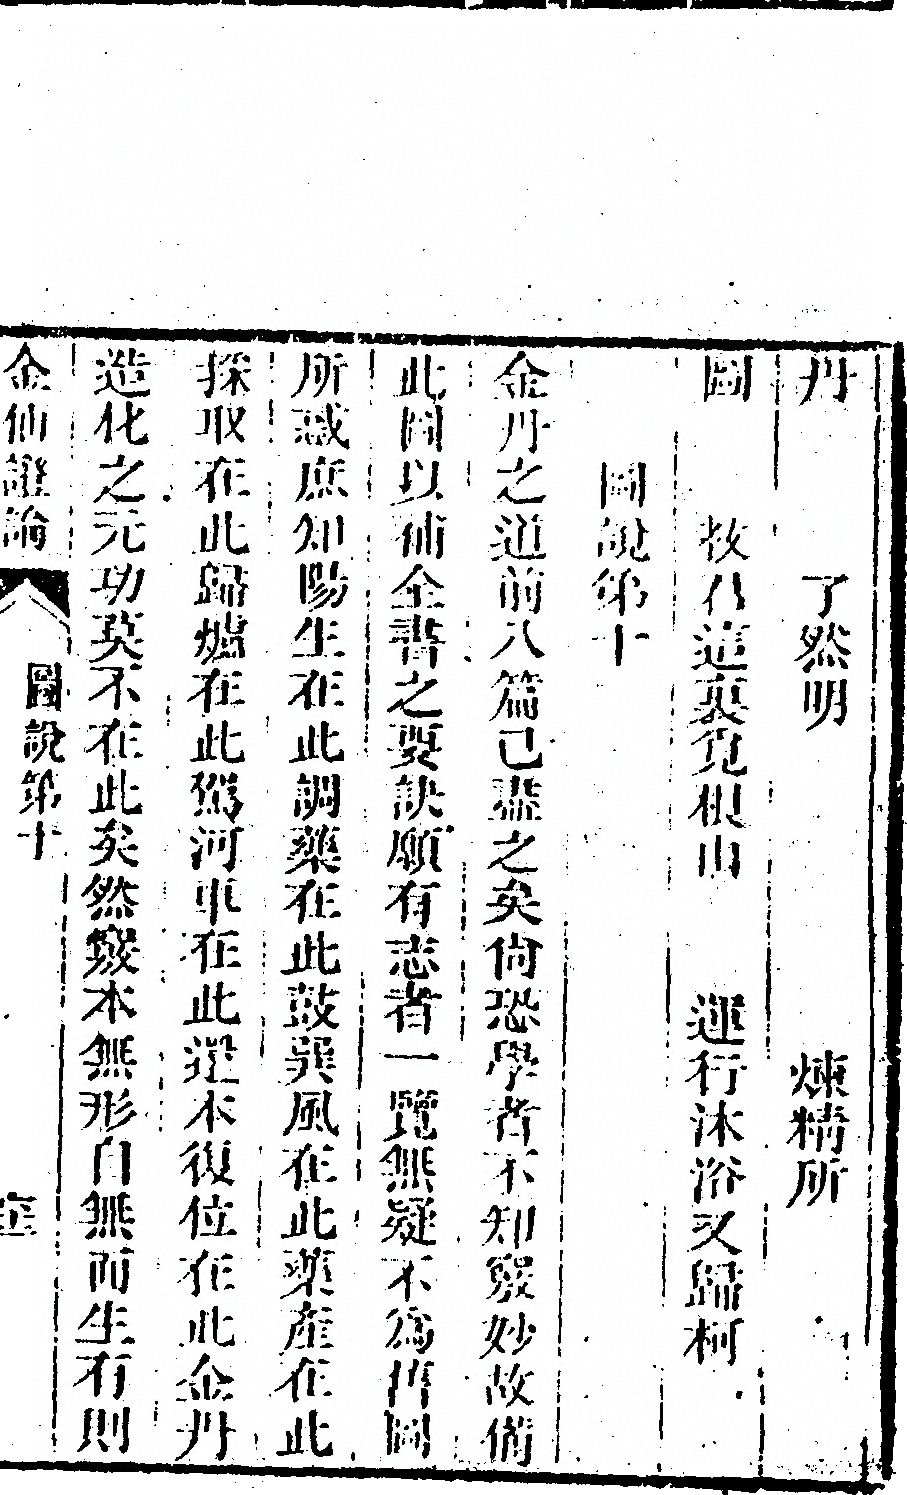 丹　了然明　煉精所
圖　教君這裏覓根由　運行沐浴又歸柯
圖說第十
金丹之道前八篇已盡之矣尚恐學者不知竅妙故備
此圖以補全書之要訣願有志者一覽無疑不爲舊圖
所惑庶知陽生在此調藥在此鼓巽風在此藥產在此
採取在此歸爐在此駕河車在此還本復位在此金丹
造化之元功莫不在此矣然竅本無形自無而生有則
金仙證論　圖說第十